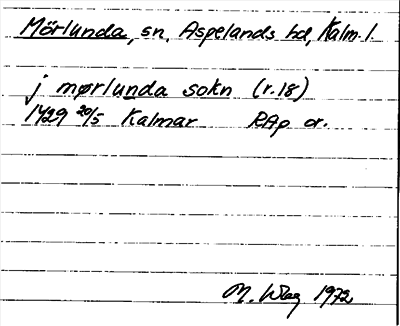 Mörlunda, sn, Aspelands hd, Kalm. l.
j mørlunda sokn (r.18)
1429 20/5 Kalmar RAp or.
M. 1972